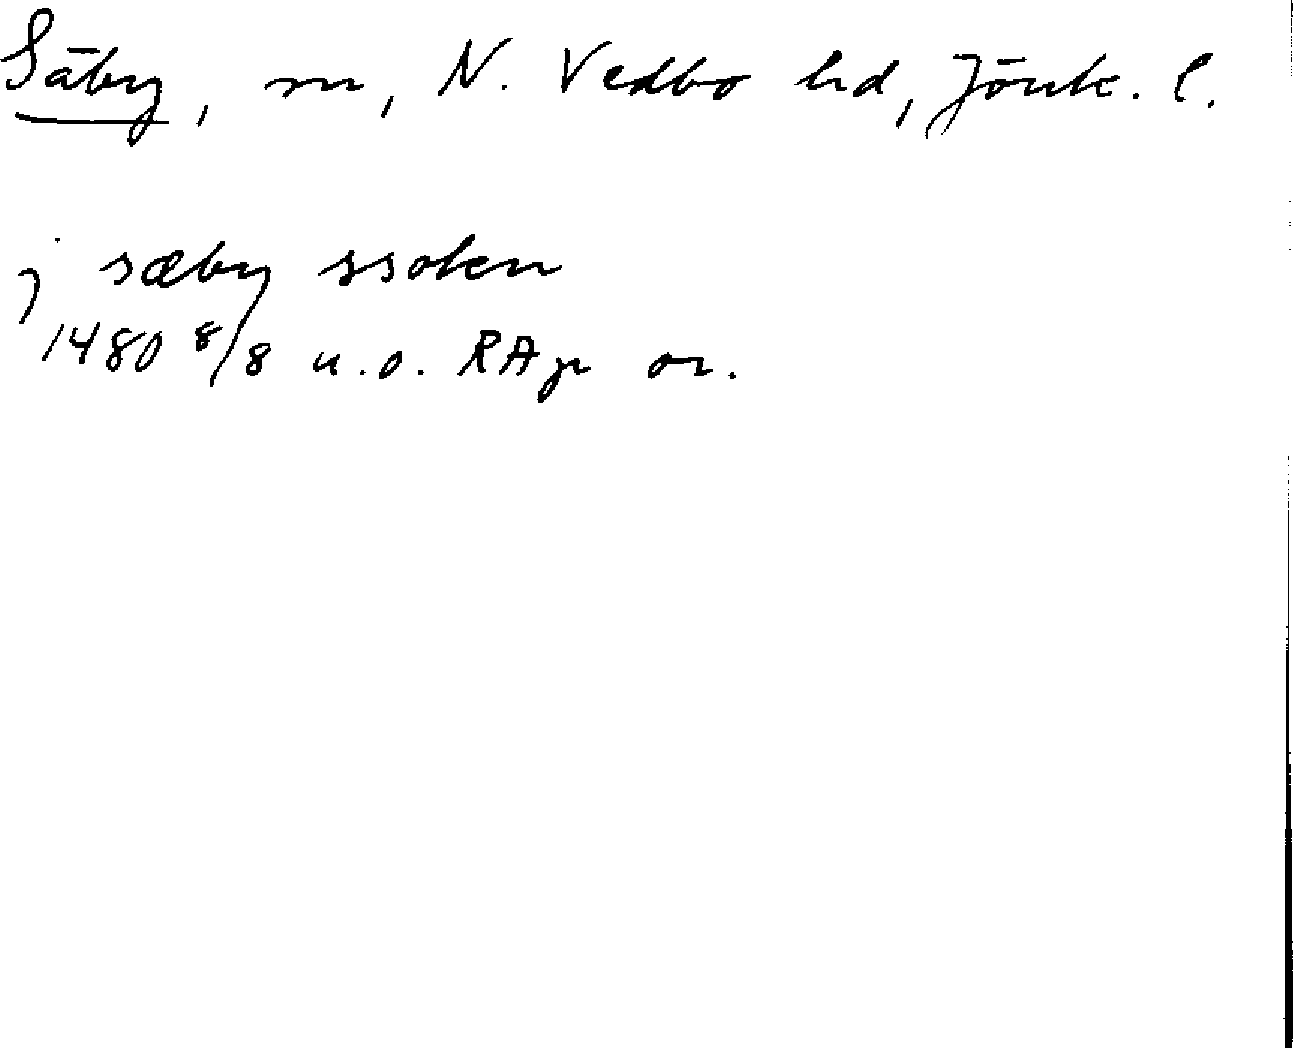 Säby, sn, N. Vedbo hd, Jönk. l.
j sæby ssoken
1480 8/8 u.o. RAp or.